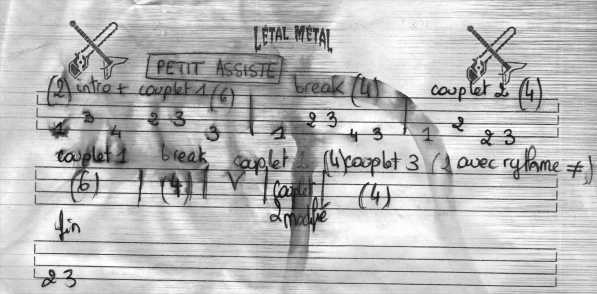 LÉTAL MÉTAL
PETIT ASSISTE
(2) intro + couplet 1 (6) break (4) couplet 2 (4)
1 3 4 2 3 3 1 2 3 4 3 1 2 2 3
couplet 1 break couplet 2 (4) couplet 3 (2 avec rythme ≠)
(6) (4) V couplet (4)
2 modifié
fin
2 3